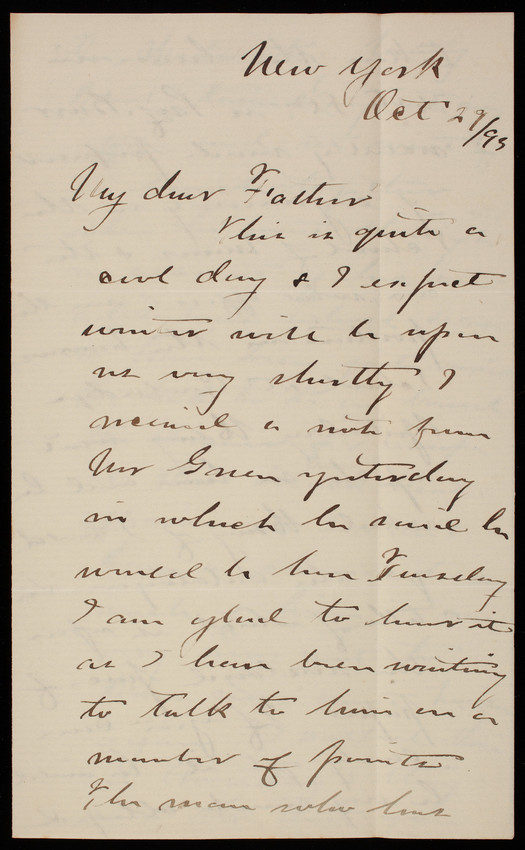 New York
Oct 29/93
My dear Father
This is quite a
cool day & I expect
winter will be upon
us very shortly. I
received a note from
Mr Green yesterday
in which he said he
would be here Tuesday
I am glad to hear it
as I have been waiting
to talk to him on a
number of points
The man who has